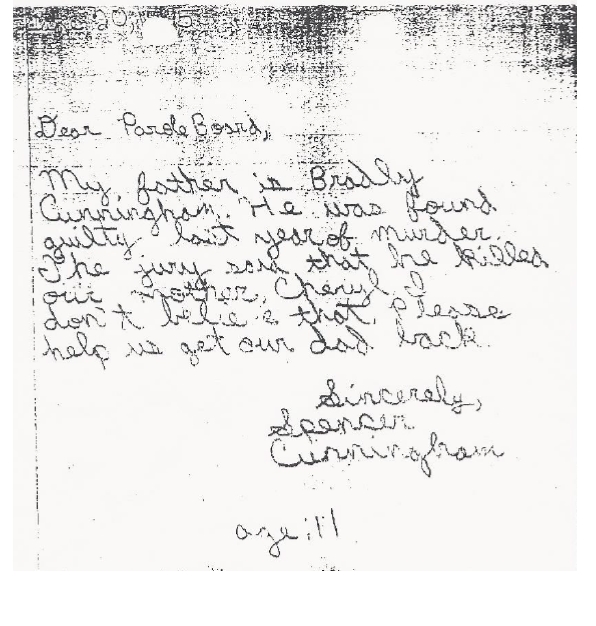 Dear Parole Board,
My father is Bradly
Cunningham. He was found
guilty last year of murder.
The jury said that he killed
our mother, Cheryl I
don't belie e that. Please
help us get our dad back.
Sincerely,
Spencer
Cunningham
age: 11